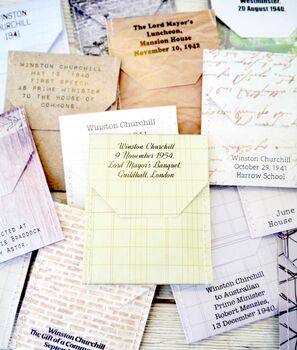 STON CHURCHILL
1941
The Lord Mayor's
Luncheon,
Mansion House
November 10, 1942
Westminster,
20 August 1940.
WINSTON CHURCHILL
MAY 13, 1940
FIRST SPEECH
AS PRIME MINISTER
TO THE HOUSE OF
COMMONS.
Winston Churchill
1941
Winston Churchill
9 November 1954,
Lord Mayor's Banquet,
Guildhall, London
Winston Churchill
October 29, 1941
Harrow School
June
House
ECTED AT
IE BRADDOCK
Y ASTOR.
Winston Churchill
to Australian
Prime Minister
Robert Menzies,
13 December 1940.
Winston Churchill
The Gift of a Comm
Septe